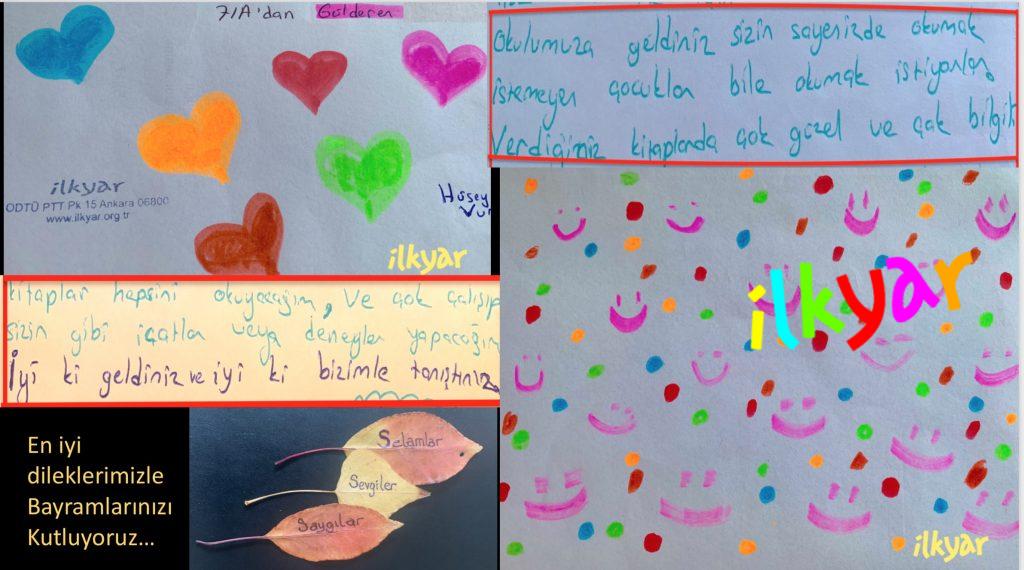 7/A'dan Gülderen
ilkyar
ODTÜ PTT Pk 15 Ankara 06800
www.ilkyar.org.tr
ilkyar
Okulumuza geldiniz sizin sayenizde okumak
istemeyen çocuklar bile okumak istiyorlar.
Verdiğiniz kitaplarda çok güzel ve çok
kitaplar hepsini okuyacağım, ve çok çalışıp
sizin gibi icatlar veya deneyler yapacağım
İyi ki geldiniz ve iyi ki bizimle tanıştınız.
ilkyar
ilkyar
En iyi
dileklerimizle
Bayramlarınızı
Kutluyoruz...
Selamlar
Sevgiler
Saygılar